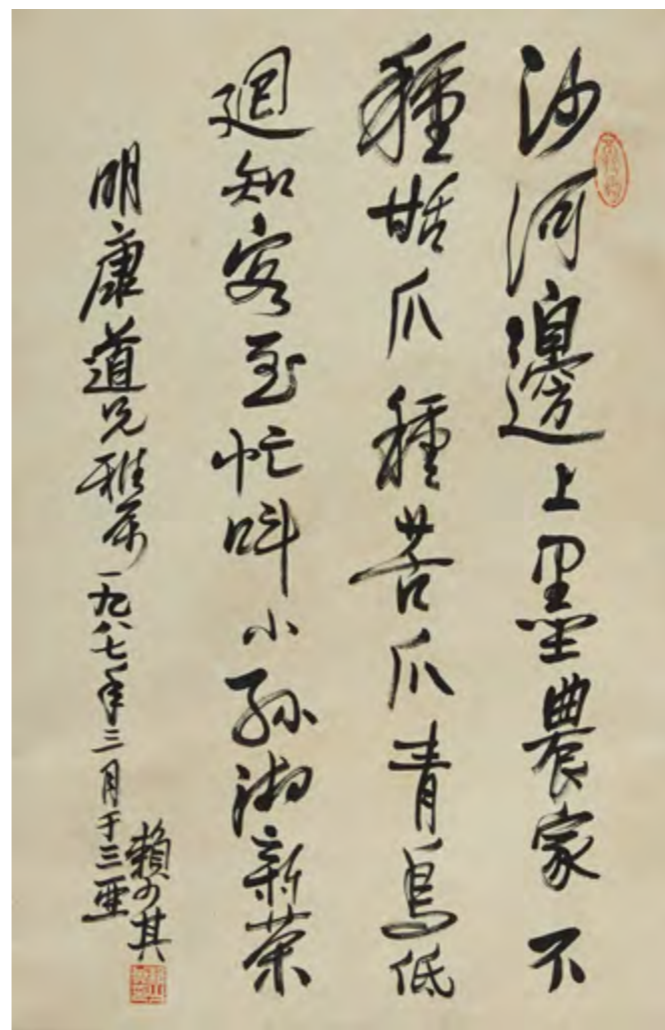 沙河邊上墨農家不
種甜瓜種苦瓜青鳥低
迴知客至忙呌小孫新茶
明康道兄雅属一九八七年三月于三亞
賴少其